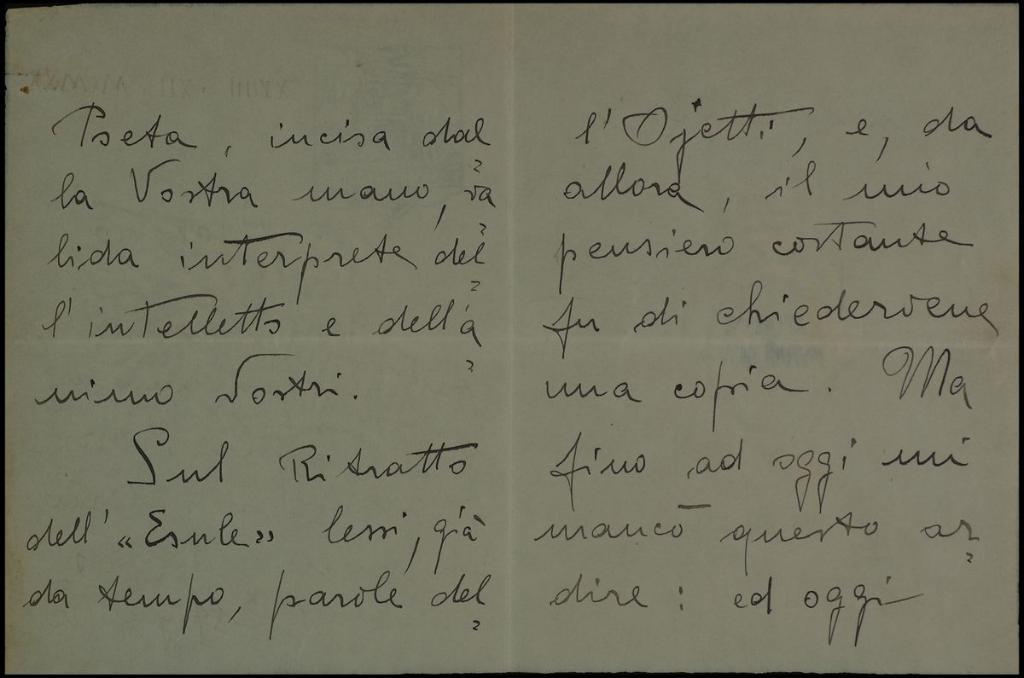 Poeta, incisa dal-
la Vostra mano, va-
lida interprete del-
l'intelletto e dell'a-
nimo Vostri.
Sul Ritratto
dell' «Esule» lessi, già
da tempo, parole del-
l'Ojetti, e, da
allora, il mio
pensiero costante
fu di chiedervene
una copia. Ma
fino ad oggi mi
mancò questo ar-
dire: ed oggi